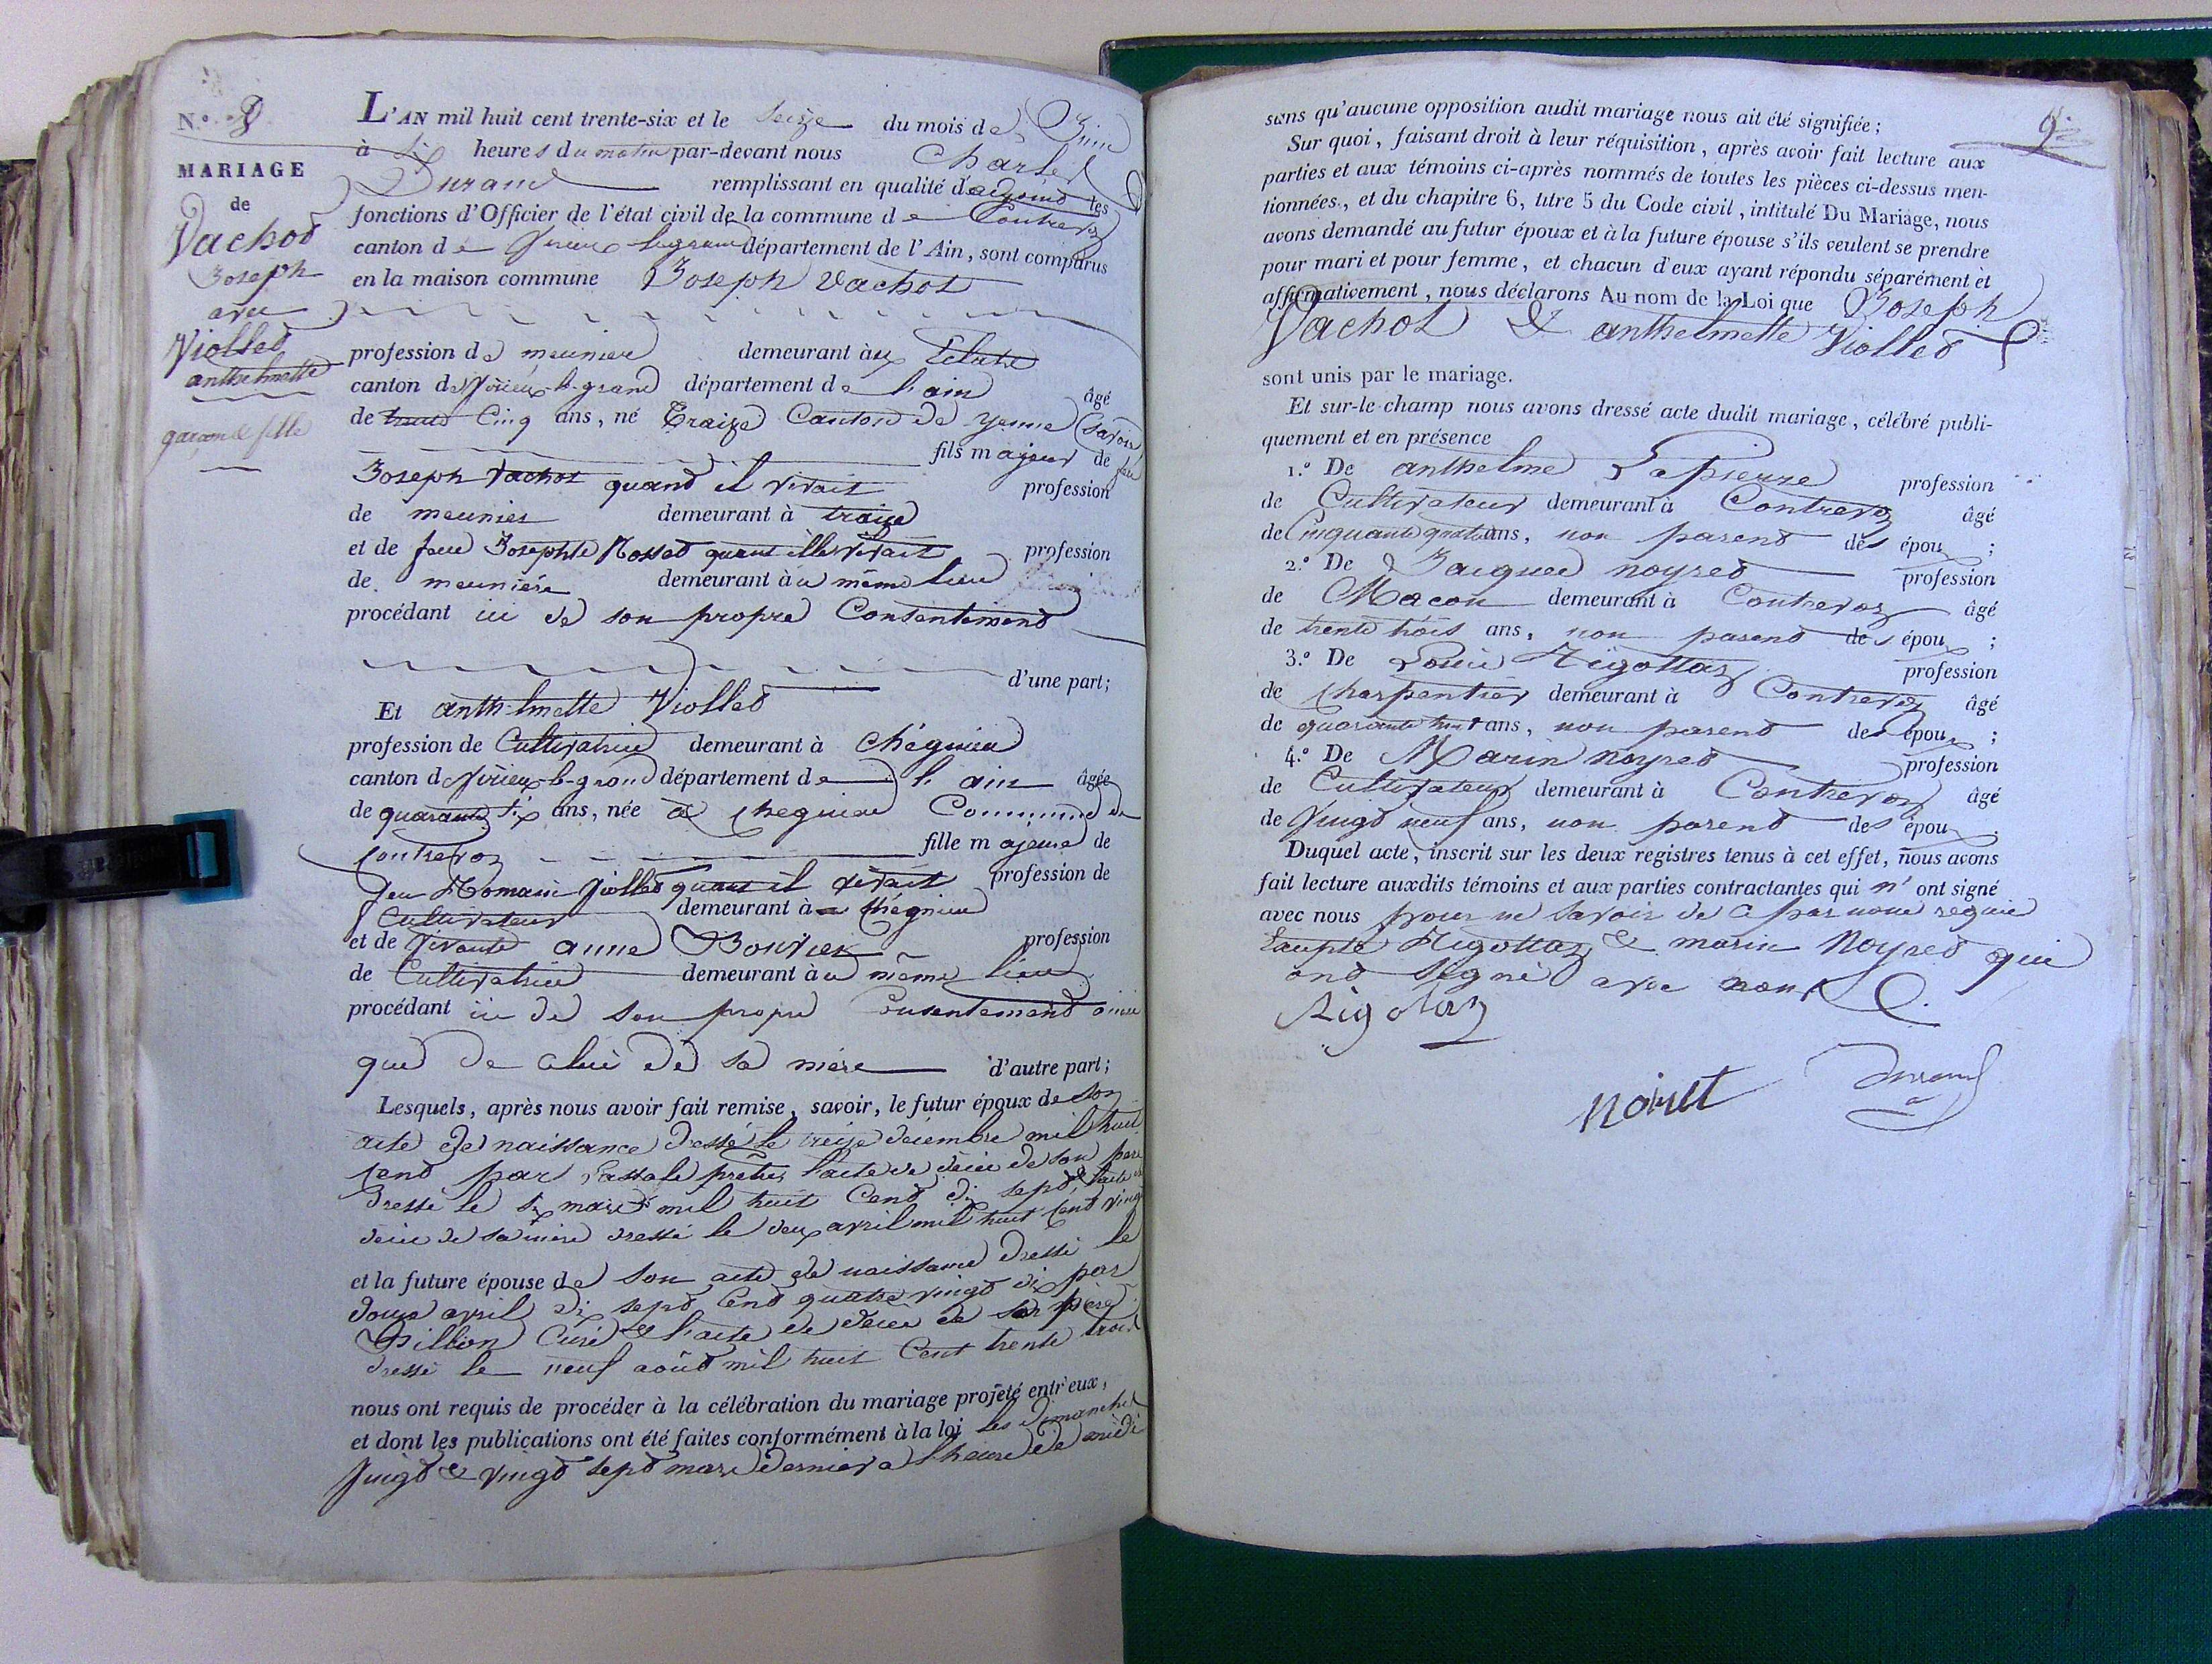 N.º 8
MARIAGE
de
Vachod
Joseph
avec
Violled
anthelmette
garçon & fille
L'AN mil huit cent trente-six et le seize du mois de Juin
à six heures du matin par-devant nous Charles
Durand remplissant en qualité d'adjoind les
fonctions d'Officier de l'état civil de la commune de Contrevoz
canton de Virieux-le-grand département de l'Ain, sont comparus
en la maison commune Joseph Vachot
profession de meunier demeurant aux
canton de Virieux-le-grand département de l'ain âgé
de trente Cinq ans, né Traize Canton de yenne (Savoie)
fils majeur de feu
Joseph Vachot quand il vivait profession
de meunier demeurant à traize
et de feue Josephte Rossed quand elle vivait profession
de meunière demeurant au même lieu
procédant ici de son propre Consentemend
d'une part;
Et anthelmette Violled
profession de Cultivatrice demeurant à Chégnieu
canton de Virieux-le-grand département de l'ain âgée
de quarante six ans, née à Chegnieu Commune de
Contrevoz fille majeure de
feu Romain Violled quand il vivait profession de
Cultivateur demeurant à Chégnieu
et de vivante anne Bouvier profession
de Cultivatrice demeurant au même lieu
procédant ici de son propre Consentemend ainsi
que de celui de sa mère d'autre part;
Lesquels, après nous avoir fait remise, savoir, le futur époux de son
acte de naissance dressé le treize décembre mil huit
cend par prêtre, l'acte de décès de son père
dressé le six mars mil huit Cend dix sept, & l'acte de
décès de sa mère dressé le deux avril mil huit Cend vingt
et la future épouse de son acte de naissance dressé le
douze avril dix sept Cend quatre vingt dix par
Billion Curé & l'acte de décès de son père
dressé le neuf août mil huit Cent trente trois
nous ont requis de procéder à la célébration du mariage projeté entr'eux,
et dont les publications ont été faites conformément à la loi les dimanches
vingt & vingt sept mars dernier à l'heure de midi
9
sans qu'aucune opposition audit mariage nous ait été signifiée;
Sur quoi, faisant droit à leur réquisition, après avoir fait lecture aux
parties et aux témoins ci-après nommés de toutes les pièces ci-dessus men-
tionnées, et du chapitre 6, titre 5 du Code civil, intitulé Du Mariage, nous
avons demandé au futur époux et à la future épouse s'ils veulent se prendre
pour mari et pour femme, et chacun d'eux ayant répondu séparément et
affirmativement, nous déclarons Au nom de la Loi que Joseph
Vachot & anthelmette Viollet
sont unis par le mariage.
Et sur-le-champ nous avons dressé acte dudit mariage, célébré publi-
quement et en présence
1.º De anthelme Lapierre profession
de Cultivateur demeurant à Contrevoz âgé
de Cinquante quatre ans, non parend des époux;
2.º De Jacques noyred profession
de Macon demeurant à Contrevoz âgé
de trente trois ans, non parend des époux;
3.º De Louis Rigottaz profession
de Charpentier demeurant à Contrevoz âgé
de quarante huit ans, non parend des époux;
4.º De Marin noyred profession
de Cultivateur demeurant à Contrevoz âgé
de vingt neuf ans, non parend des époux.
Duquel acte, inscrit sur les deux registres tenus à cet effet, nous avons
fait lecture auxdits témoins et aux parties contractantes qui n'ont signé
avec nous pour ne savoir de ce par nous requis
Excepté Rigottaz & marin Noyred qui
ond signé avec nous
Rigotaz
noiret
Durand